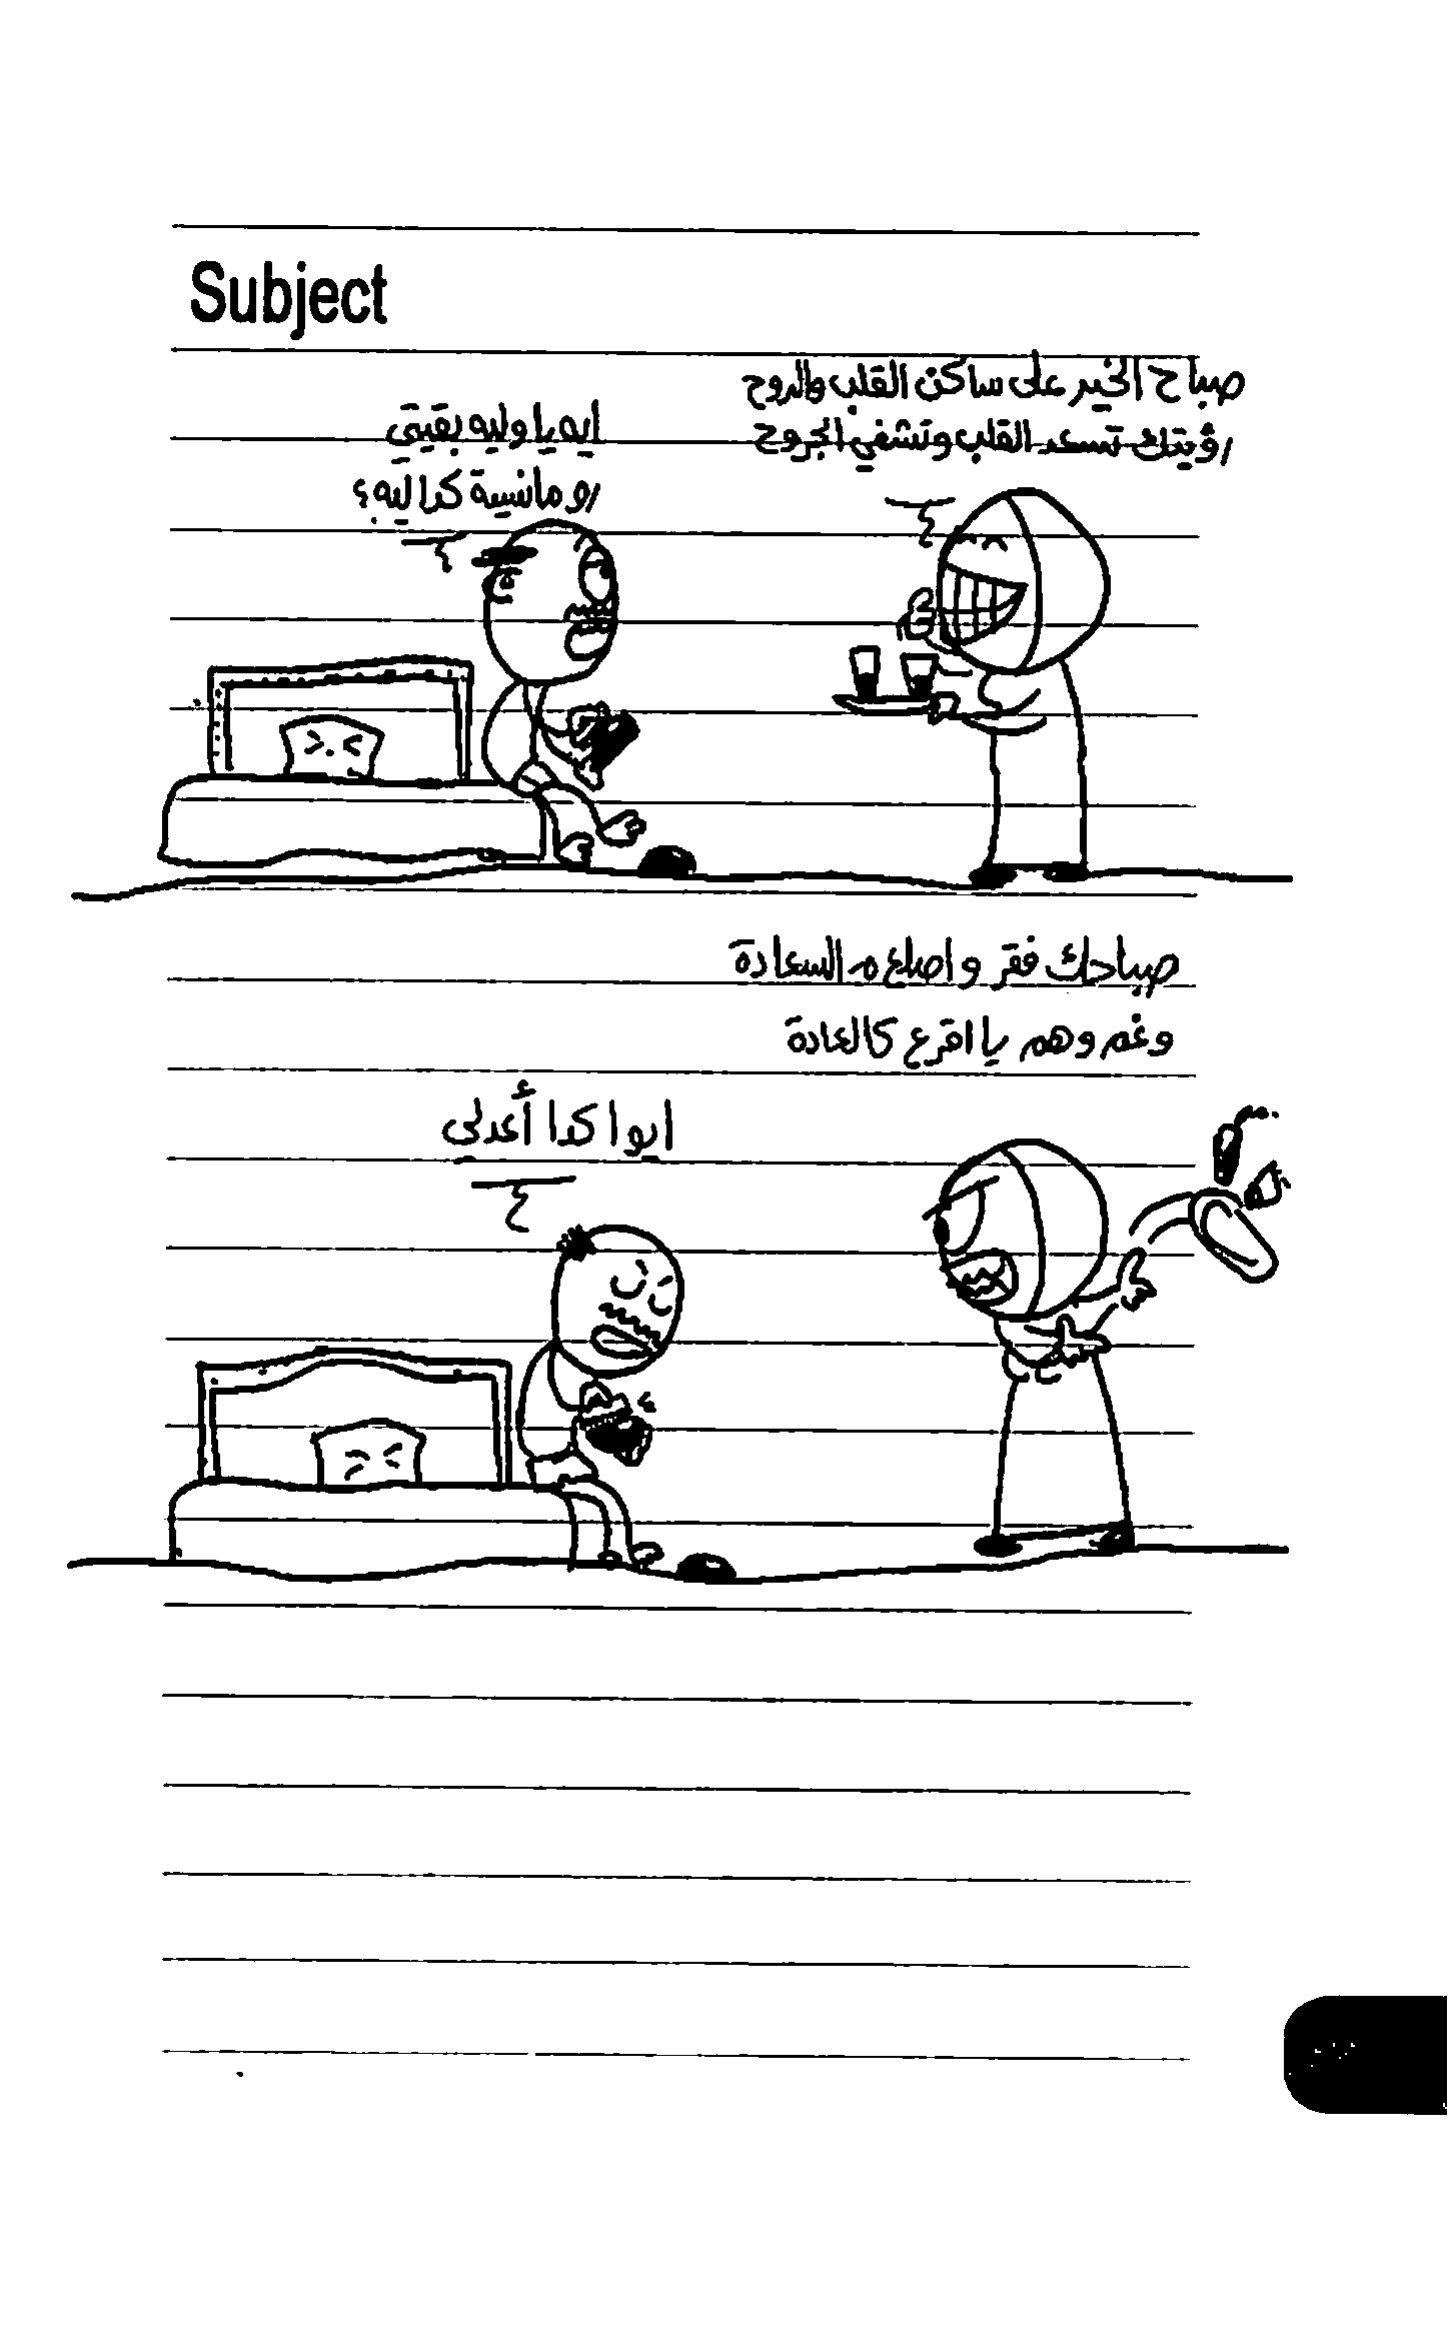 Subject
صباح الخير على ساكن القلب والروح
رؤيتك تسعد القلب وتشفي الجروح
ايه يا وليه بقيتي
رومانسية كدا ليه؟
صباحك فقر واصلع م السعادة
وغم وهم يا اقرع كالعادة
ايوا كدا أعدلي